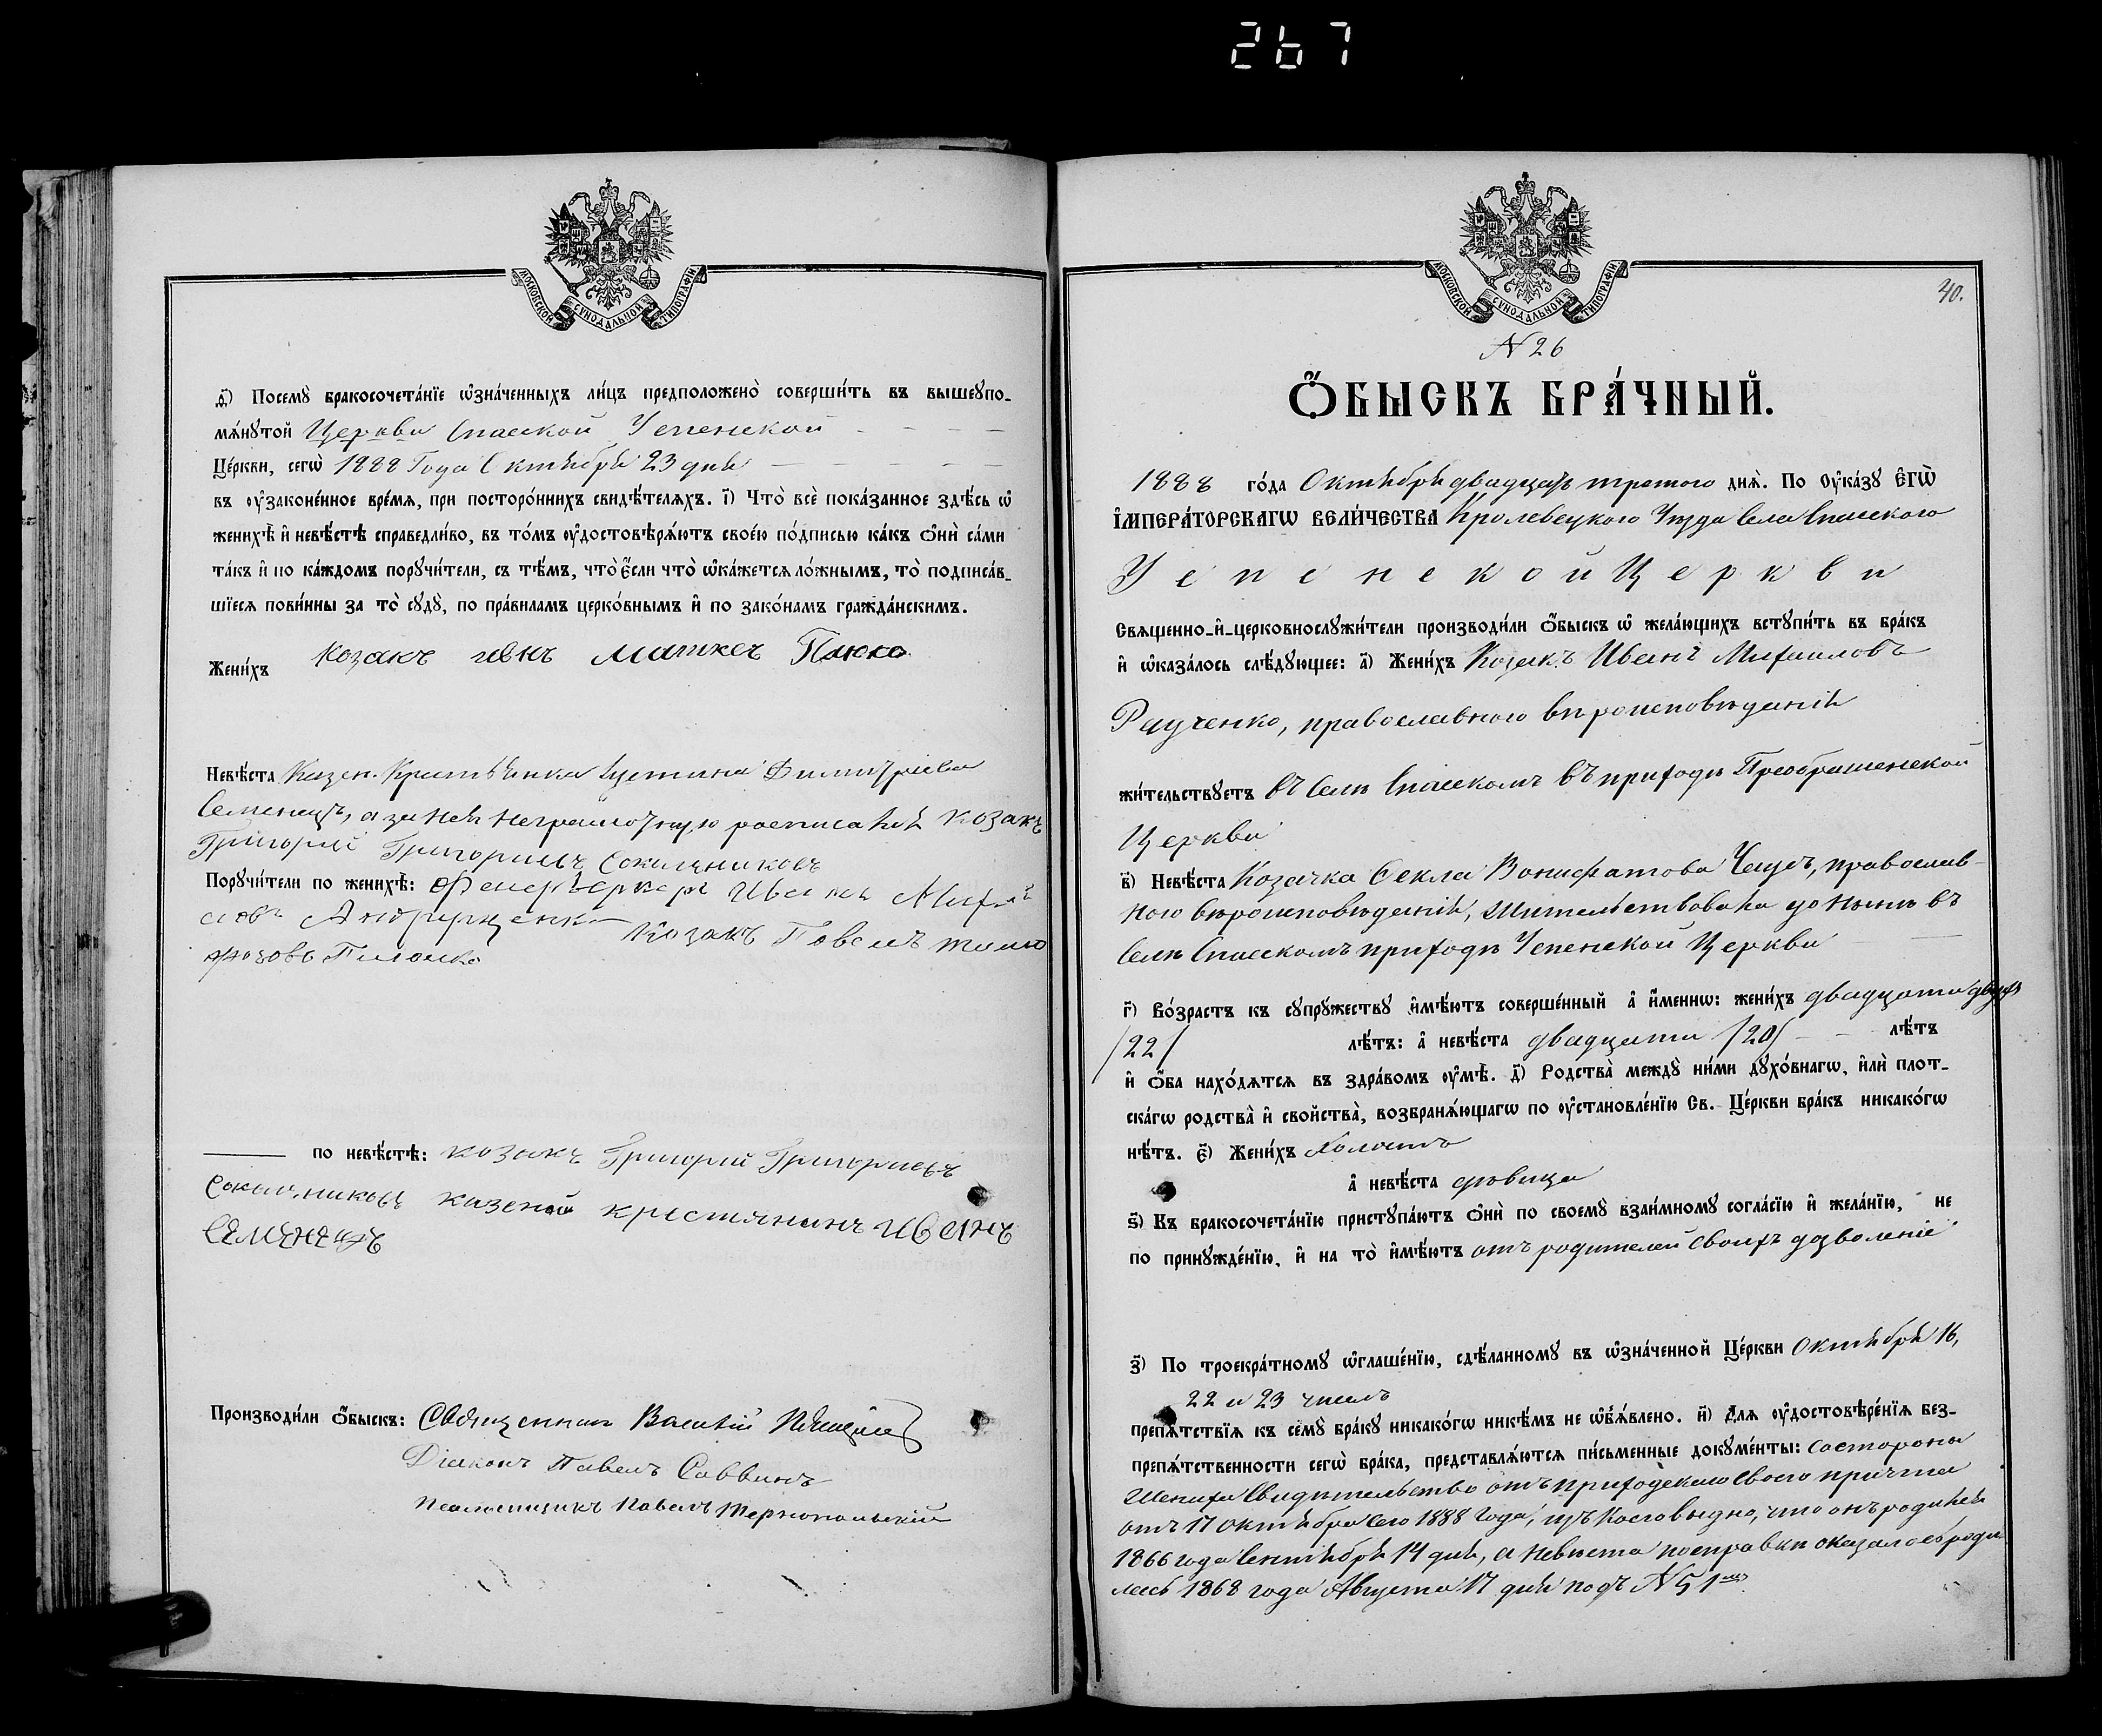 267
МОСКОВСКОЙ СУНОДАЛЬНОЙ ТИПОГРАФІИ
д҃) Посемꙋ̀ бракосочета́нїе ѡ҆зна́ченныхъ ли́цъ предположено̀ соверши́ть въ вышеꙋпо-
мѧ́нꙋтой Церкви Спаской Успенской
Це́ркви, сегѡ̀ 1888 Года Октября 23 дня
въ ᲂу҆законе́нное вре́мѧ, при посторо́ннихъ свидѣ́телѧхъ. і҃) Что̀ всѐ пока́занное здѣ́сь ѡ҆
женихѣ̀ и҆ невѣ́стѣ справедли́во, въ то́мъ ᲂу҆достовѣрѧ́ютъ свое́ю по́дписью ка́къ ѻ҆нѝ са́ми
та́къ и҆ по ка́ждомъ порꙋчи́тели, съ тѣ́мъ, что̀ є҆́сли что̀ ѡ҆ка́жетсѧ ло́жнымъ, то̀ подписа́в-
шїесѧ пови́нны за то̀ сꙋдꙋ̀, по пра́виламъ церко́внымъ и҆ по зако́намъ гражда́нскимъ.
Жени́хъ Козакъ ивнъ
Невѣ́ста Казен. Крестьянка Устина Димитріева
Семенецъ, а за нея неграмотную росписался козакъ
Григорій Григориевъ Сокольниковъ
Порꙋчи́тели по женихѣ̀: Фенерверкеръ Иванъ Михай
ловъ Андрущенко Козакъ Павелъ Тимо
по невѣ́стѣ: козакъ Григорій Григориевъ
Сокольниковъ казеной крестянинъ Иванъ
Семененъ
Производи́ли ѻ҆́быскъ: Священникъ Василій
Діаконъ Павелъ Саввинъ
Псаломщикъ Павелъ Тернопольскій
МОСКОВСКОЙ СУНОДАЛЬНОЙ ТИПОГРАФІИ
40.
N 26
Ѻ҆́БЫСКЪ БРА́ЧНЫЙ.
1888 го́да Октября двадцать третого днѧ̀. По ᲂу҆ка́зꙋ Є҆гѡ̀
І҆мпера́торскагѡ вели́чества Кролевецкого Уезда Села Спаского
Успенской Церкви
Свѧщенно-и҆-церковнослꙋжи́тели производи́ли ѻ҆́быскъ ѡ҆ жела́ющихъ встꙋпи́ть въ бра́къ
и҆ ѡ҆каза́лось слѣ́дꙋющее: а҃) Жени́хъ Козакъ Иванъ Михаиловъ
Радченко, православного вероисповѣданія
жи́тельствꙋетъ въ Селѣ Спасскомъ въ приходѣ Преображенской
Церкви
в҃) Невѣ́ста Козачка Фекла Вонифатова православ-
ного вѣроисповѣданія, жительствовала до нынѣ въ
Селѣ Спасскомъ приходѣ Успенской Церкви
г҃) Во́зрастъ къ сꙋпрꙋ́жествꙋ и҆мѣ́ютъ соверше́нный а҆ и҆́меннѡ: жени́хъ двадцати двухъ
/22/ лѣ́тъ: а҆ невѣ́ста двадцати /20/ лѣ́тъ
и҆ ѻ҆́ба нахо́дѧтсѧ въ здра́вомъ ᲂу҆мѣ̀. д҃) Родства̀ междꙋ̀ ни́ми дꙋхо́внагѡ, и҆лѝ плот-
ска́гѡ родства̀ и҆ свойства̀, возбранѧ́ющагѡ по ᲂу҆становле́нїю Св. Це́ркви бра́къ никако́гѡ
нѣ́тъ. є҃) Жени́хъ Холостъ
а҆ невѣ́ста дѣвица
ѕ҃) Къ бракосочета́нїю пристꙋпа́ютъ ѻ҆нѝ по своемꙋ̀ взаи́мномꙋ согла́сїю и҆ жела́нїю, не
по принꙋжде́нїю, и҆ на то̀ и҆мѣ́ютъ отъ родителей своихъ дозволеніе
з҃) По троекра́тномꙋ ѡ҆глаше́нїю, сдѣ́ланномꙋ въ ѡ҆зна́ченной Це́ркви Октября 16,
22 и 23 числъ
препѧ́тствїѧ къ семꙋ̀ бра́кꙋ никако́гѡ никѣ́мъ не ѡ҆б̾ѧ́влено. и҃) Длѧ ᲂу҆достовѣре́нїѧ без-
препѧ́тственности сегѡ̀ бра́ка, представлѧ́ютсѧ пи́сьменные докꙋме́нты: состороны
Жениха Свидѣтельство отъ приходского своего причта
отъ 17 октября сего 1888 года, изъ коего видно, что онъ родился
1866 года Сентября 14 дня, а невѣста посправки оказалось роди
лась 1868 года Августа 17 дня подъ N 51